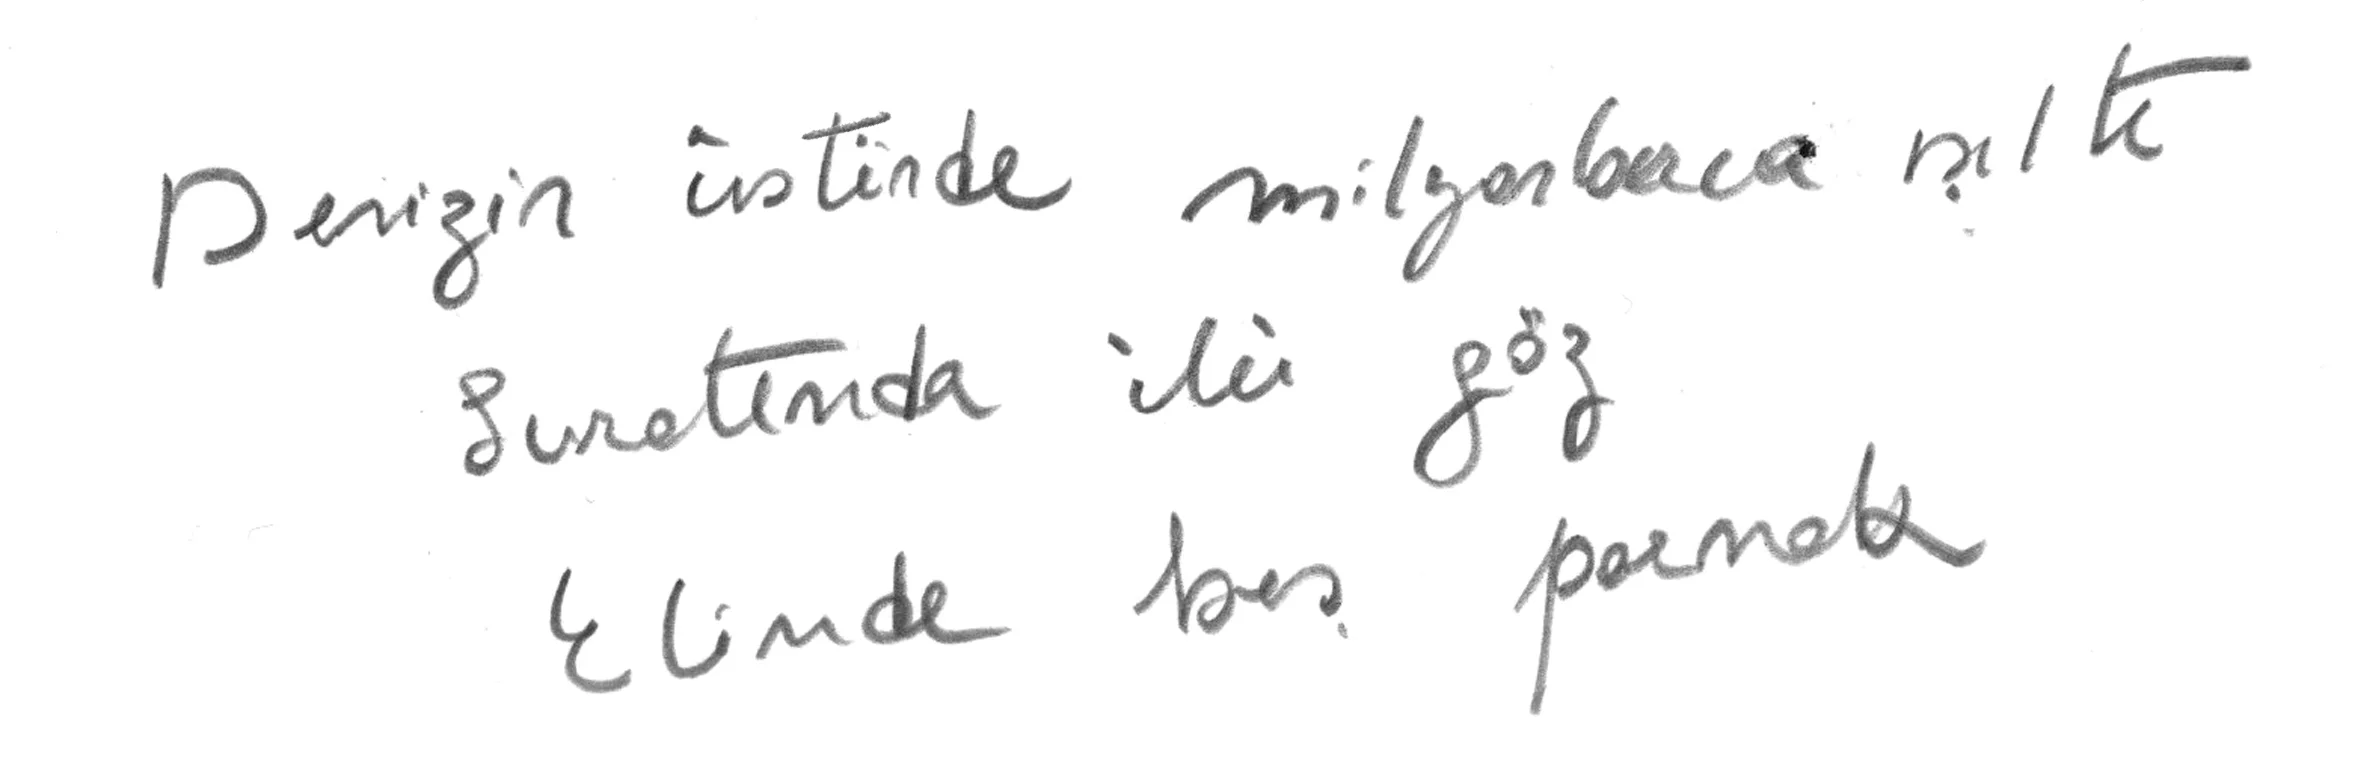 Denizin üstünde milyonlarca ışıltı
Suratında iki göz
Elinde beş parmak